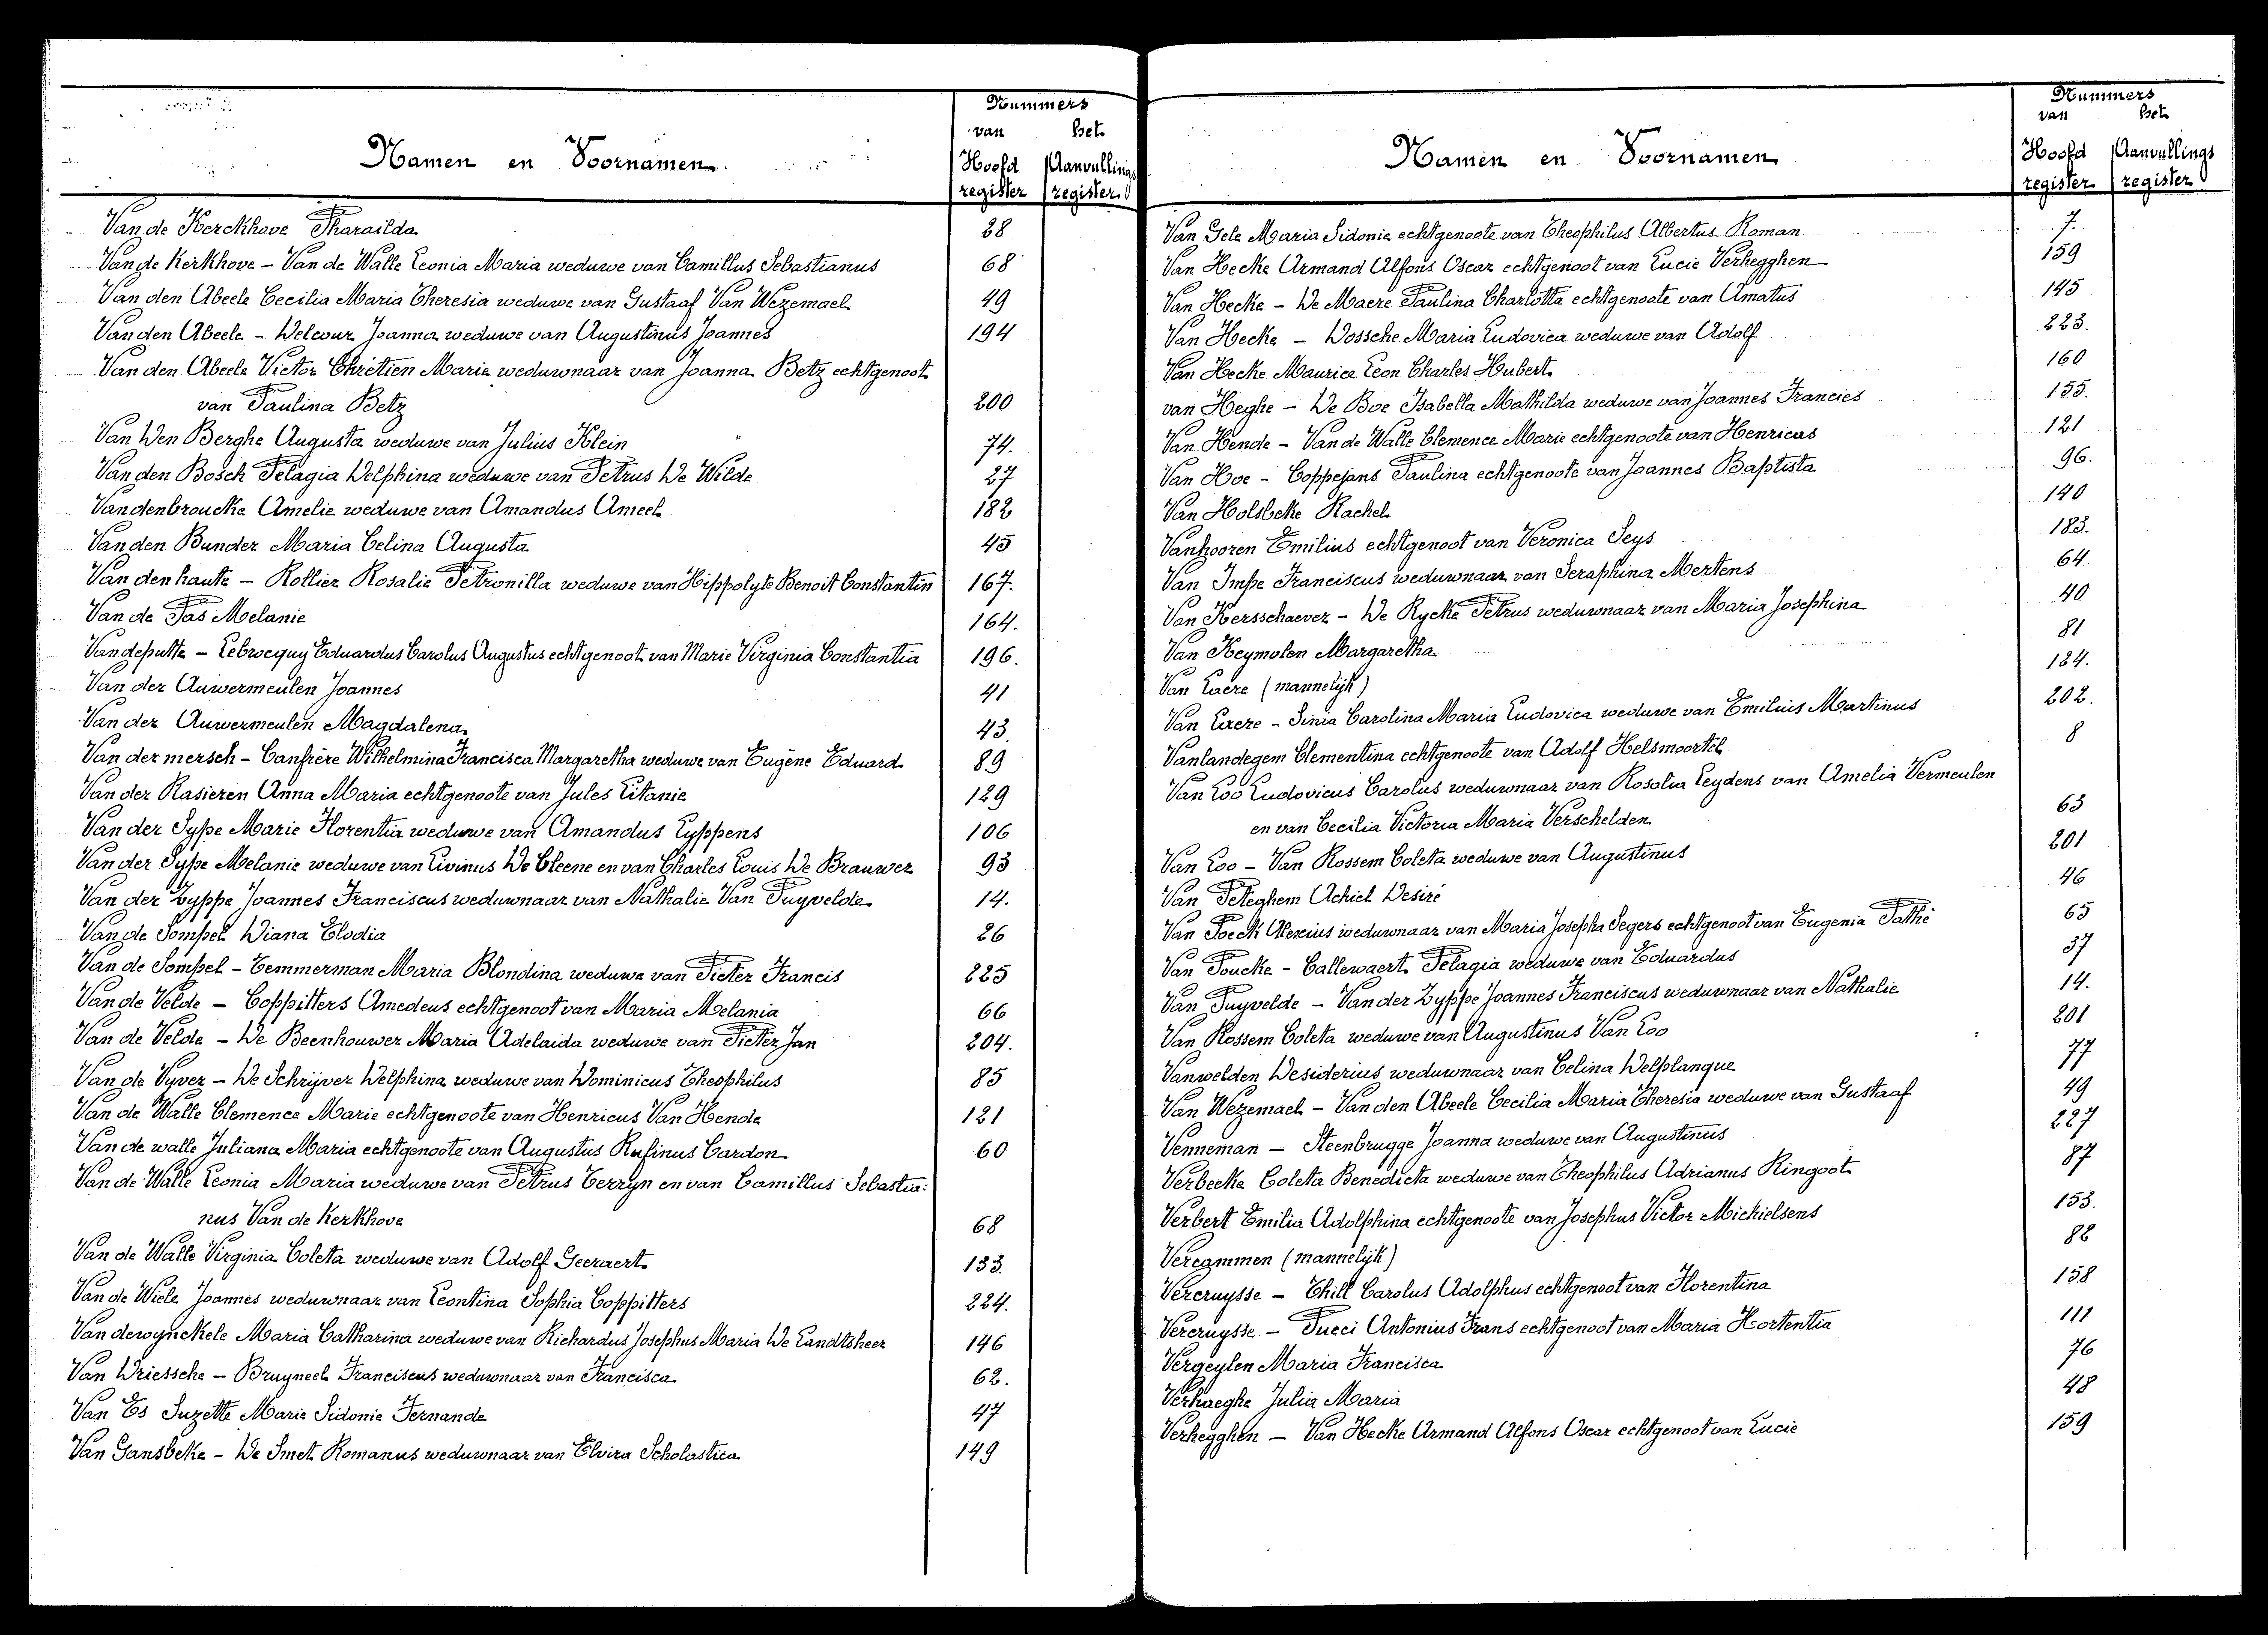 Namen en Voornamen.
Nummers
van het
Hoofd Aanvullings
register register
Van de Kerckhove Pharaïlda 28
Van de Kerkhove – Van de Walle Leonia Maria weduwe van Camillus Sebastianus 68
Van den Abeele Cecilia Maria Theresia weduwe van Gustaaf Van Wezemael 49
Van den Abeele – Delcour Joanna weduwe van Augustinus Joannes 194
Van den Abeele Victor Chrétien Marie weduwnaar van Joanna Betz echtgenoot
van Paulina Betz 200
Van Den Berghe Augusta weduwe van Julius Klein 74.
Van den Bosch Pelagia Delphina weduwe van Petrus De Wilde 27
Vandenbroucke Amelie weduwe van Amandus Ameel 182
Van den Bunder Maria Celina Augusta 45
Van den haute – Rollier Rosalie Petronilla weduwe van Hippolyte Benoit Constantin 167.
Van de Pas Melanie 164.
Van deputte – Lebrecquy Eduardus Carolus Augustus echtgenoot van Marie Virginia Constantia 196.
Van der Auwermeulen Joannes 41
Van der Auwermeulen Magdalena 43.
Van der mersch – Canfrère Wilhelmina Francisca Margaretha weduwe van Eugène Eduard 89
Van der Rasieren Anna Maria echtgenoote van Jules Litanie 129
Van der Sype Marie Florentia weduwe van Amandus Lyppens 106
Van der Sype Melanie weduwe van Livinus De Cleene en van Charles Louis De Brauwer 93
Van der Zyppe Joannes Franciscus weduwnaar van Nathalie Van Puyvelde 14.
Van de Sompel Diana Elodia 26
Van de Sompel – Temmerman Maria Blondina weduwe van Pieter Francis 225
Van de Velde – Coppitters Amedeus echtgenoot van Maria Melania 66
Van de Velde – De Beenhouwer Maria Adelaida weduwe van Pieter Jan 204.
Van de Vyver – De Schrijver Delphina weduwe van Dominicus Theophilus 85
Van de Walle Clemence Marie echtgenoote van Henricus Van Hende 121
Van de walle Juliana Maria echtgenoote van Augustus Rufinus Cardon 60
Van de Walle Leonia Maria weduwe van Petrus Terryn en van Camillus Sebastia:
nus Van de Kerkhove 68
Van de Walle Virginia Coleta weduwe van Adolf Geeraert 133.
Van de Wiele Joannes weduwnaar van Leontina Sophia Coppitters 224.
Van dewynckele Maria Catharina weduwe van Richardus Josephus Maria De Landtsheer 146
Van Driessche – Bruyneel Franciscus weduwnaar van Francisca 62.
Van Es Suzette Marie Sidonie Fernande 47
Van Gansbeke – De Smet Romanus weduwnaar van Elvira Scholastica 149
Namen en Voornamen
Nummers
van het
Hoofd Aanvullings
register register
Van Gele Maria Sidonie echtgenoote van Theophilus Albertus Roman 7.
Van Hecke Armand Alfons Oscar echtgenoot van Lucie Verhegghen 159
Van Hecke – De Maere Paulina Charlotta echtgenoote van Amatus 145
Van Hecke – Dossche Maria Ludovica weduwe van Adolf 223.
Van Hecke Maurice Leon Charles Hubert 160
van Heghe – De Boe Isabella Mathilda weduwe van Joannes Francies 155.
Van Hende – Van de Walle Clemence Marie echtgenoote van Henricus 121
Van Hoe – Coppejans Paulina echtgenoote van Joannes Baptista 96.
Van Holsbeke Rachel 140
Vanhooren Emilius echtgenoot van Veronica Seys 183.
Van Impe Franciscus weduwnaar van Seraphina Mertens 64.
Van Kersschaever – De Rycke Petrus weduwnaar van Maria Josephina 40
Van Keymolen Margaretha 81
Van Laere (mannelijk) 184.
Van Laere – Sinia Carolina Maria Ludovica weduwe van Emilius Martinus 202.
Vanlandegem Clementina echtgenoote van Adolf Helsmoortel 8
Van Loo Ludovicus Carolus weduwnaar van Rosalia Leydens van Amelia Vermeulen
en van Cecilia Victoria Maria Verschelden 63
Van Loo – Van Rossem Coleta weduwe van Augustinus 201
Van Peteghem Achiel Desiré 46
Van Poeck Alexius weduwnaar van Maria Josepha Segers echtgenoot van Eugenia Pathé 65
Van Poucke – Callewaert Pelagia weduwe van Eduardus 37
Van Puyvelde – Van der Zyppe Joannes Franciscus weduwnaar van Nathalie 14.
Van Rossem Coleta weduwe van Augustinus Van Loo 201
Vanwelden Desiderius weduwnaar van Celina Delplanque 77
Van Wezemael – Van den Abeele Cecilia Maria Theresia weduwe van Gustaaf 49
Venneman – Steenbrugge Joanna weduwe van Augustinus 227
Verbecke Coleta Benedicta weduwe van Theophilus Adrianus Ringoot 87
Verbert Emilia Adolphina echtgenoote van Josephus Victor Michielsens 153.
Vercammen (mannelijk) 88
Vercruysse – Thill Carolus Adolphus echtgenoot van Florentina 158
Vercruysse – Pucci Antonius Frans echtgenoot van Maria Hortentia 111
Vergeylen Maria Francisca 76
Verhaeghe Julia Maria 48
Verhegghen – Van Hecke Armand Alfons Oscar echtgenoot van Lucie 159